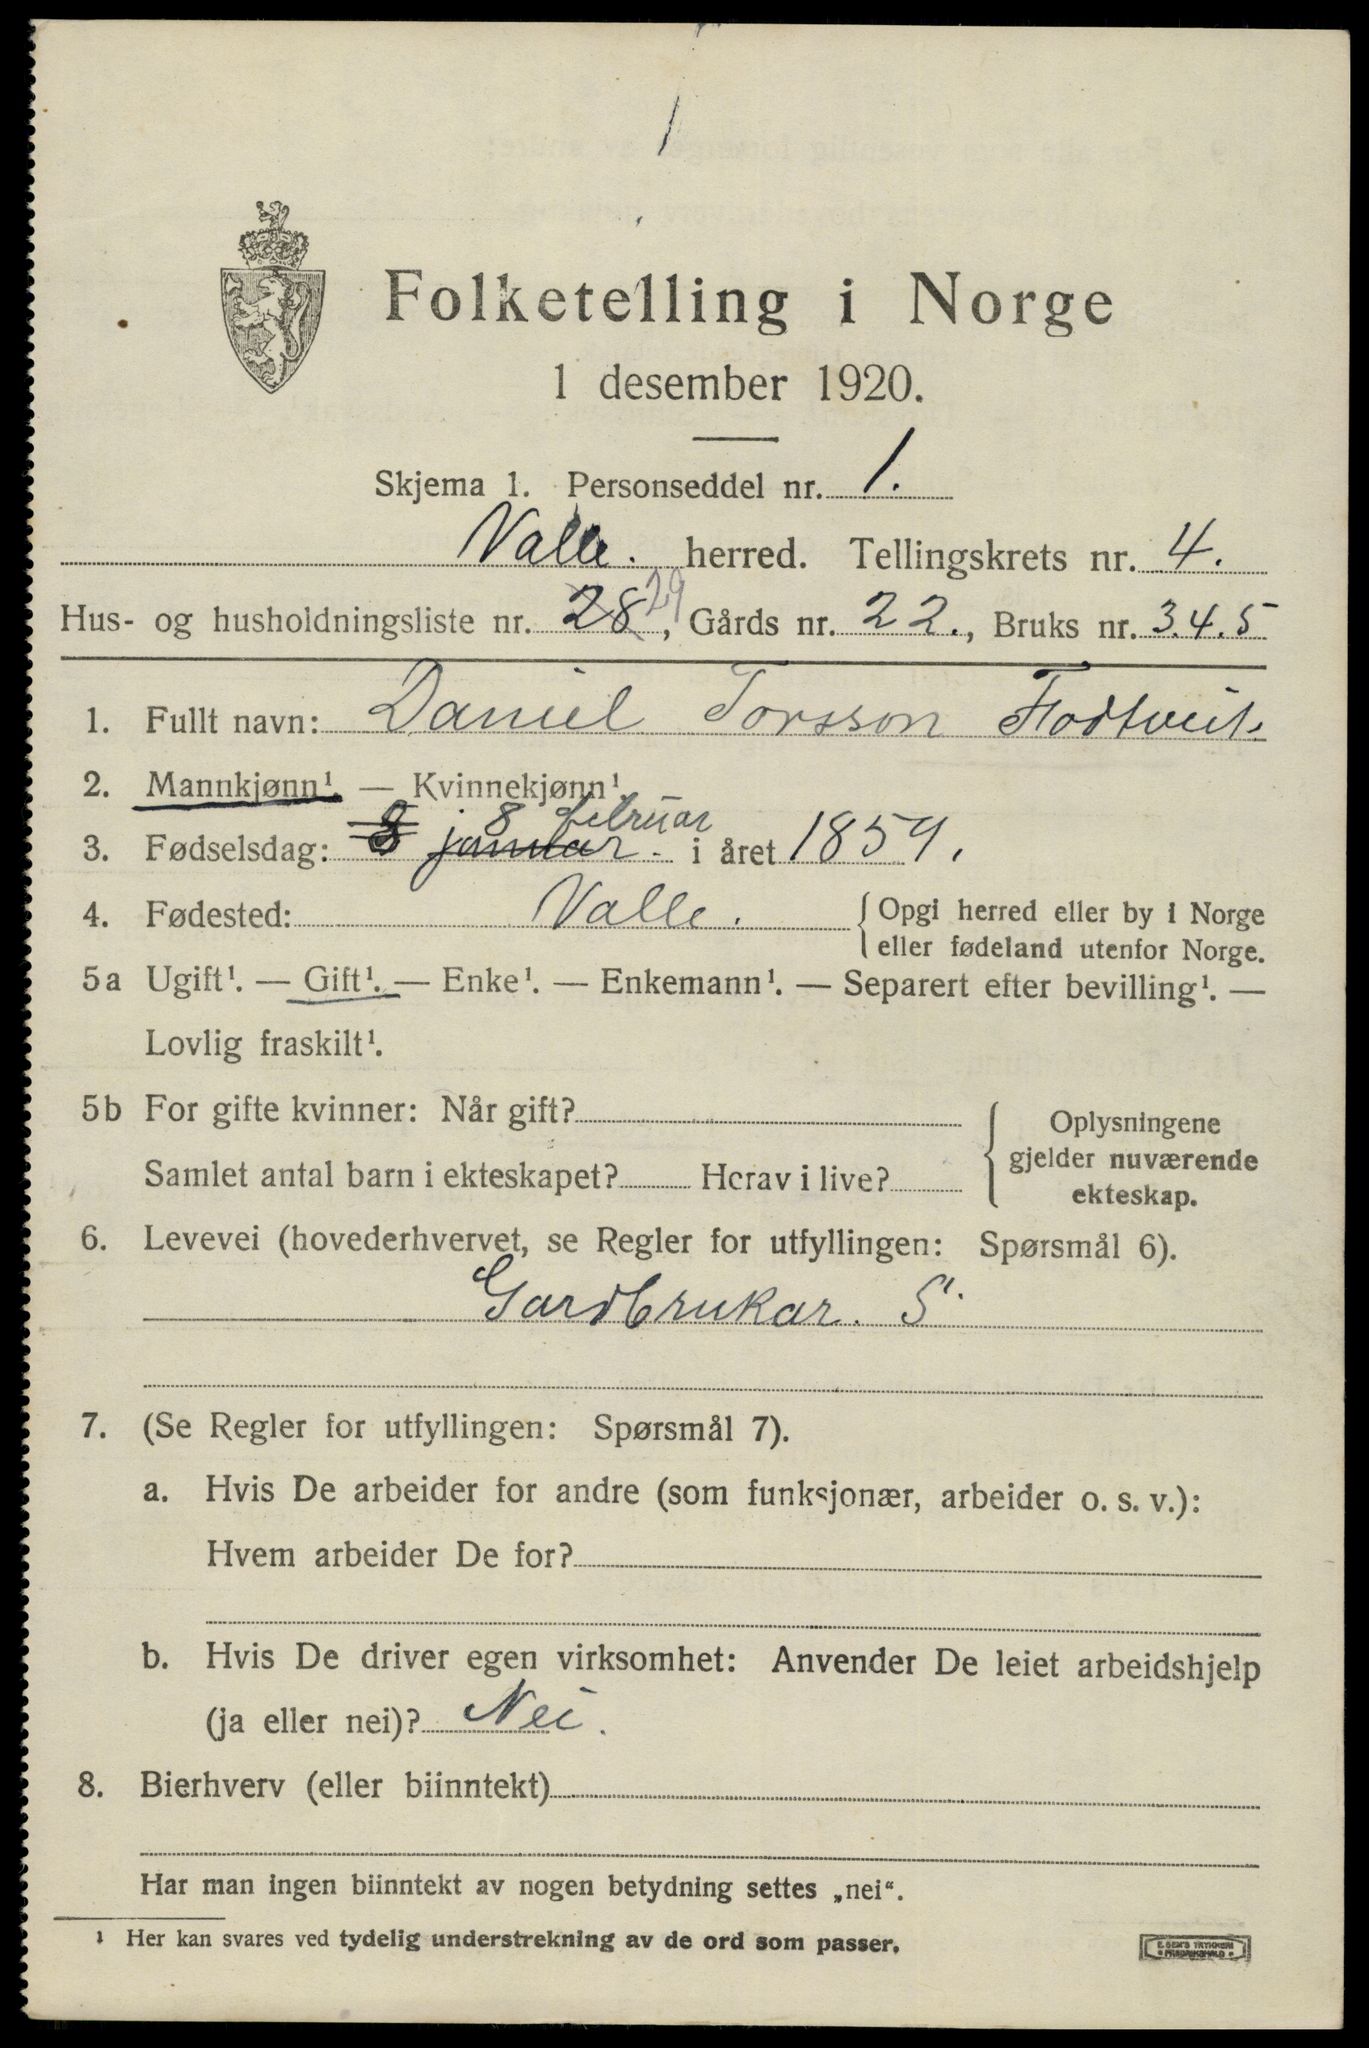 1
Folketelling i Norge
1 desember 1920.
Skjema 1. Personseddel nr. 1.
Valle. herred. Tellingskrets nr. 4.
Hus- og husholdningsliste nr. 28 29, Gårds nr. 22., Bruks nr. 3.4.5
1. Fullt navn: Daniel Torsson Flodtveit.
2. Mannkjønn¹. — Kvinnekjønn¹.
8 februar
3. Fødselsdag: 8 januar. i året 1854.
4. Fødested: Valle. { Opgi herred eller by i Norge
eller fødeland utenfor Norge.
5a Ugift¹. — Gift¹. — Enke¹. — Enkemann¹. — Separert efter bevilling¹. —
Lovlig fraskilt¹.
5b For gifte kvinner: Når gift?
Samlet antal barn i ekteskapet? Herav i live?
{ Oplysningene
gjelder nuværende
ekteskap.
6. Levevei (hovederhvervet, se Regler for utfyllingen: Spørsmål 6).
Gardbrukar. S.
7. (Se Regler for utfyllingen: Spørsmål 7).
a. Hvis De arbeider for andre (som funksjonær, arbeider o. s. v.):
Hvem arbeider De for?
b. Hvis De driver egen virksomhet: Anvender De leiet arbeidshjelp
(ja eller nei)? Nei.
8. Bierhverv (eller biinntekt)
Har man ingen biinntekt av nogen betydning settes „nei“.
¹ Her kan svares ved tydelig understrekning av de ord som passer.
E. SEM'S TRYKKERI
FREDRIKSHALD